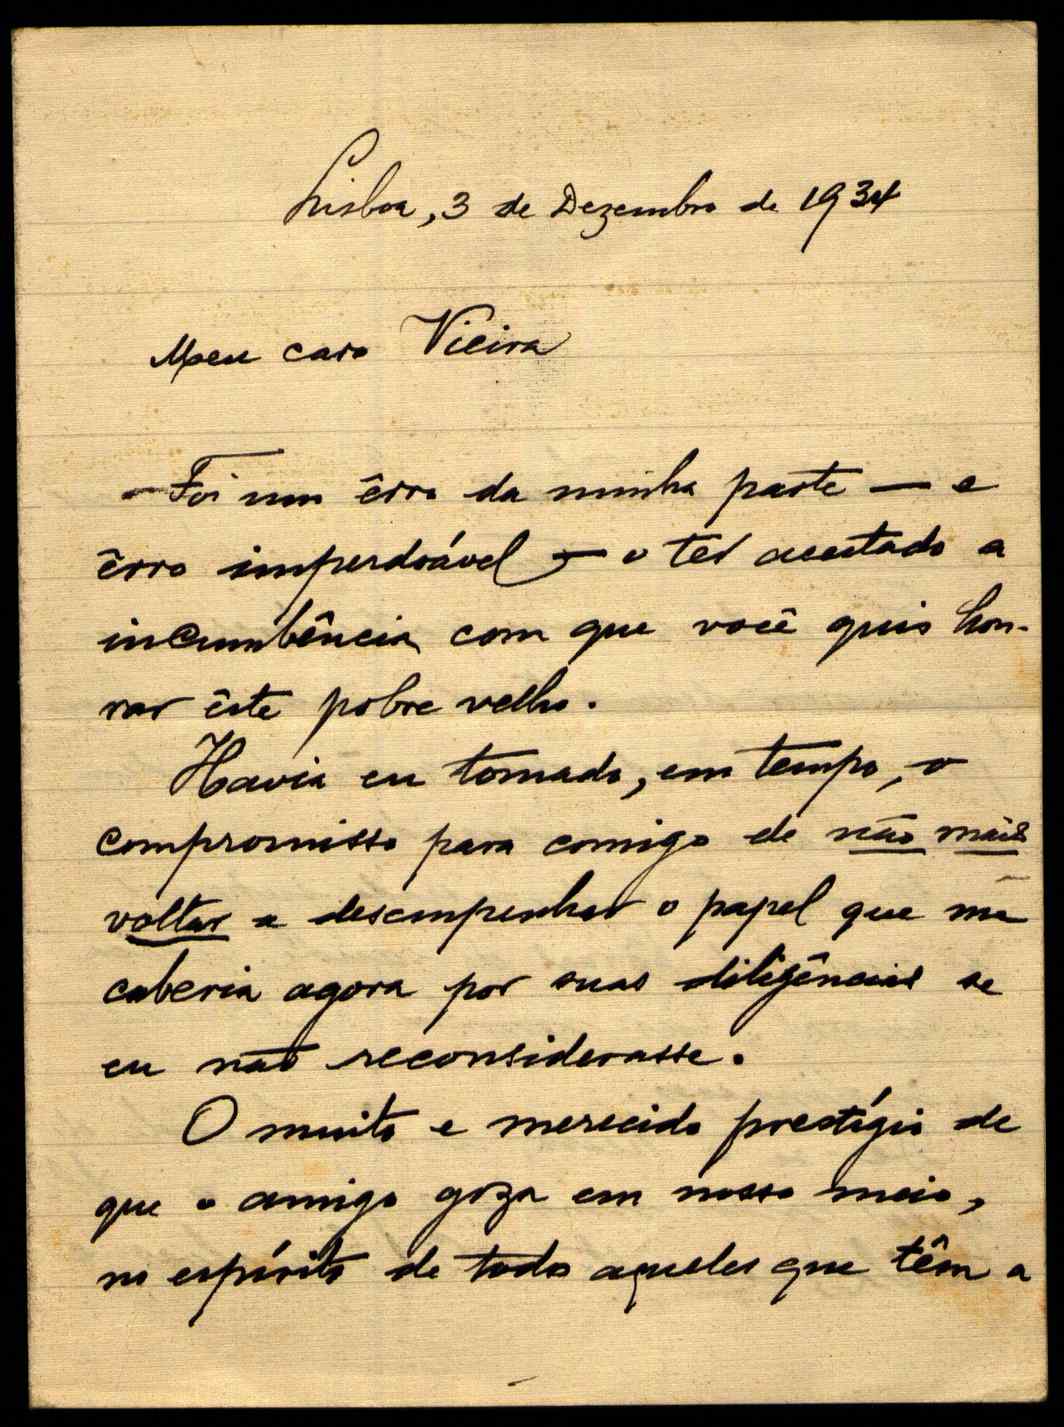 Lisboa, 3 de Dezembro de 1934
Meu caro Vieira
Foi um êrro da minha parte — e
êrro imperdoável — o ter aceitado a
incumbência com que você quis hon-
rar êste pobre velho.
Havia eu tomado, em tempo, o
compromisso para comigo de não mais
voltar a desempenhar o papel que me
caberia agora por suas diligências se
eu não reconsiderasse.
O muito e merecido prestígio de
que o amigo goza em nosso meio,
no espírito de todos aqueles que têm a